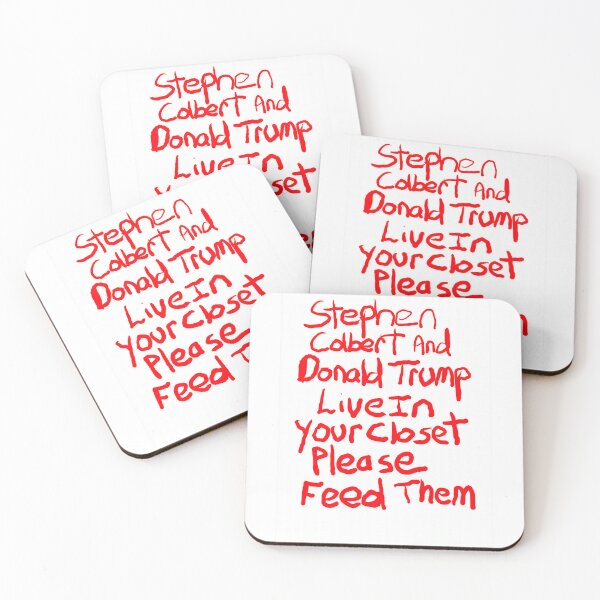 Stephen
Colbert And
Donald Trump
Live In
Stephen
Colbert And
Donald Trump
Live In
Your Closet
Please
Stephen
Colbert And
Donald Trump
Live In
Your Closet
Please
Feed
Stephen
Colbert And
Donald Trump
Live In
Your Closet
Please
Feed Them